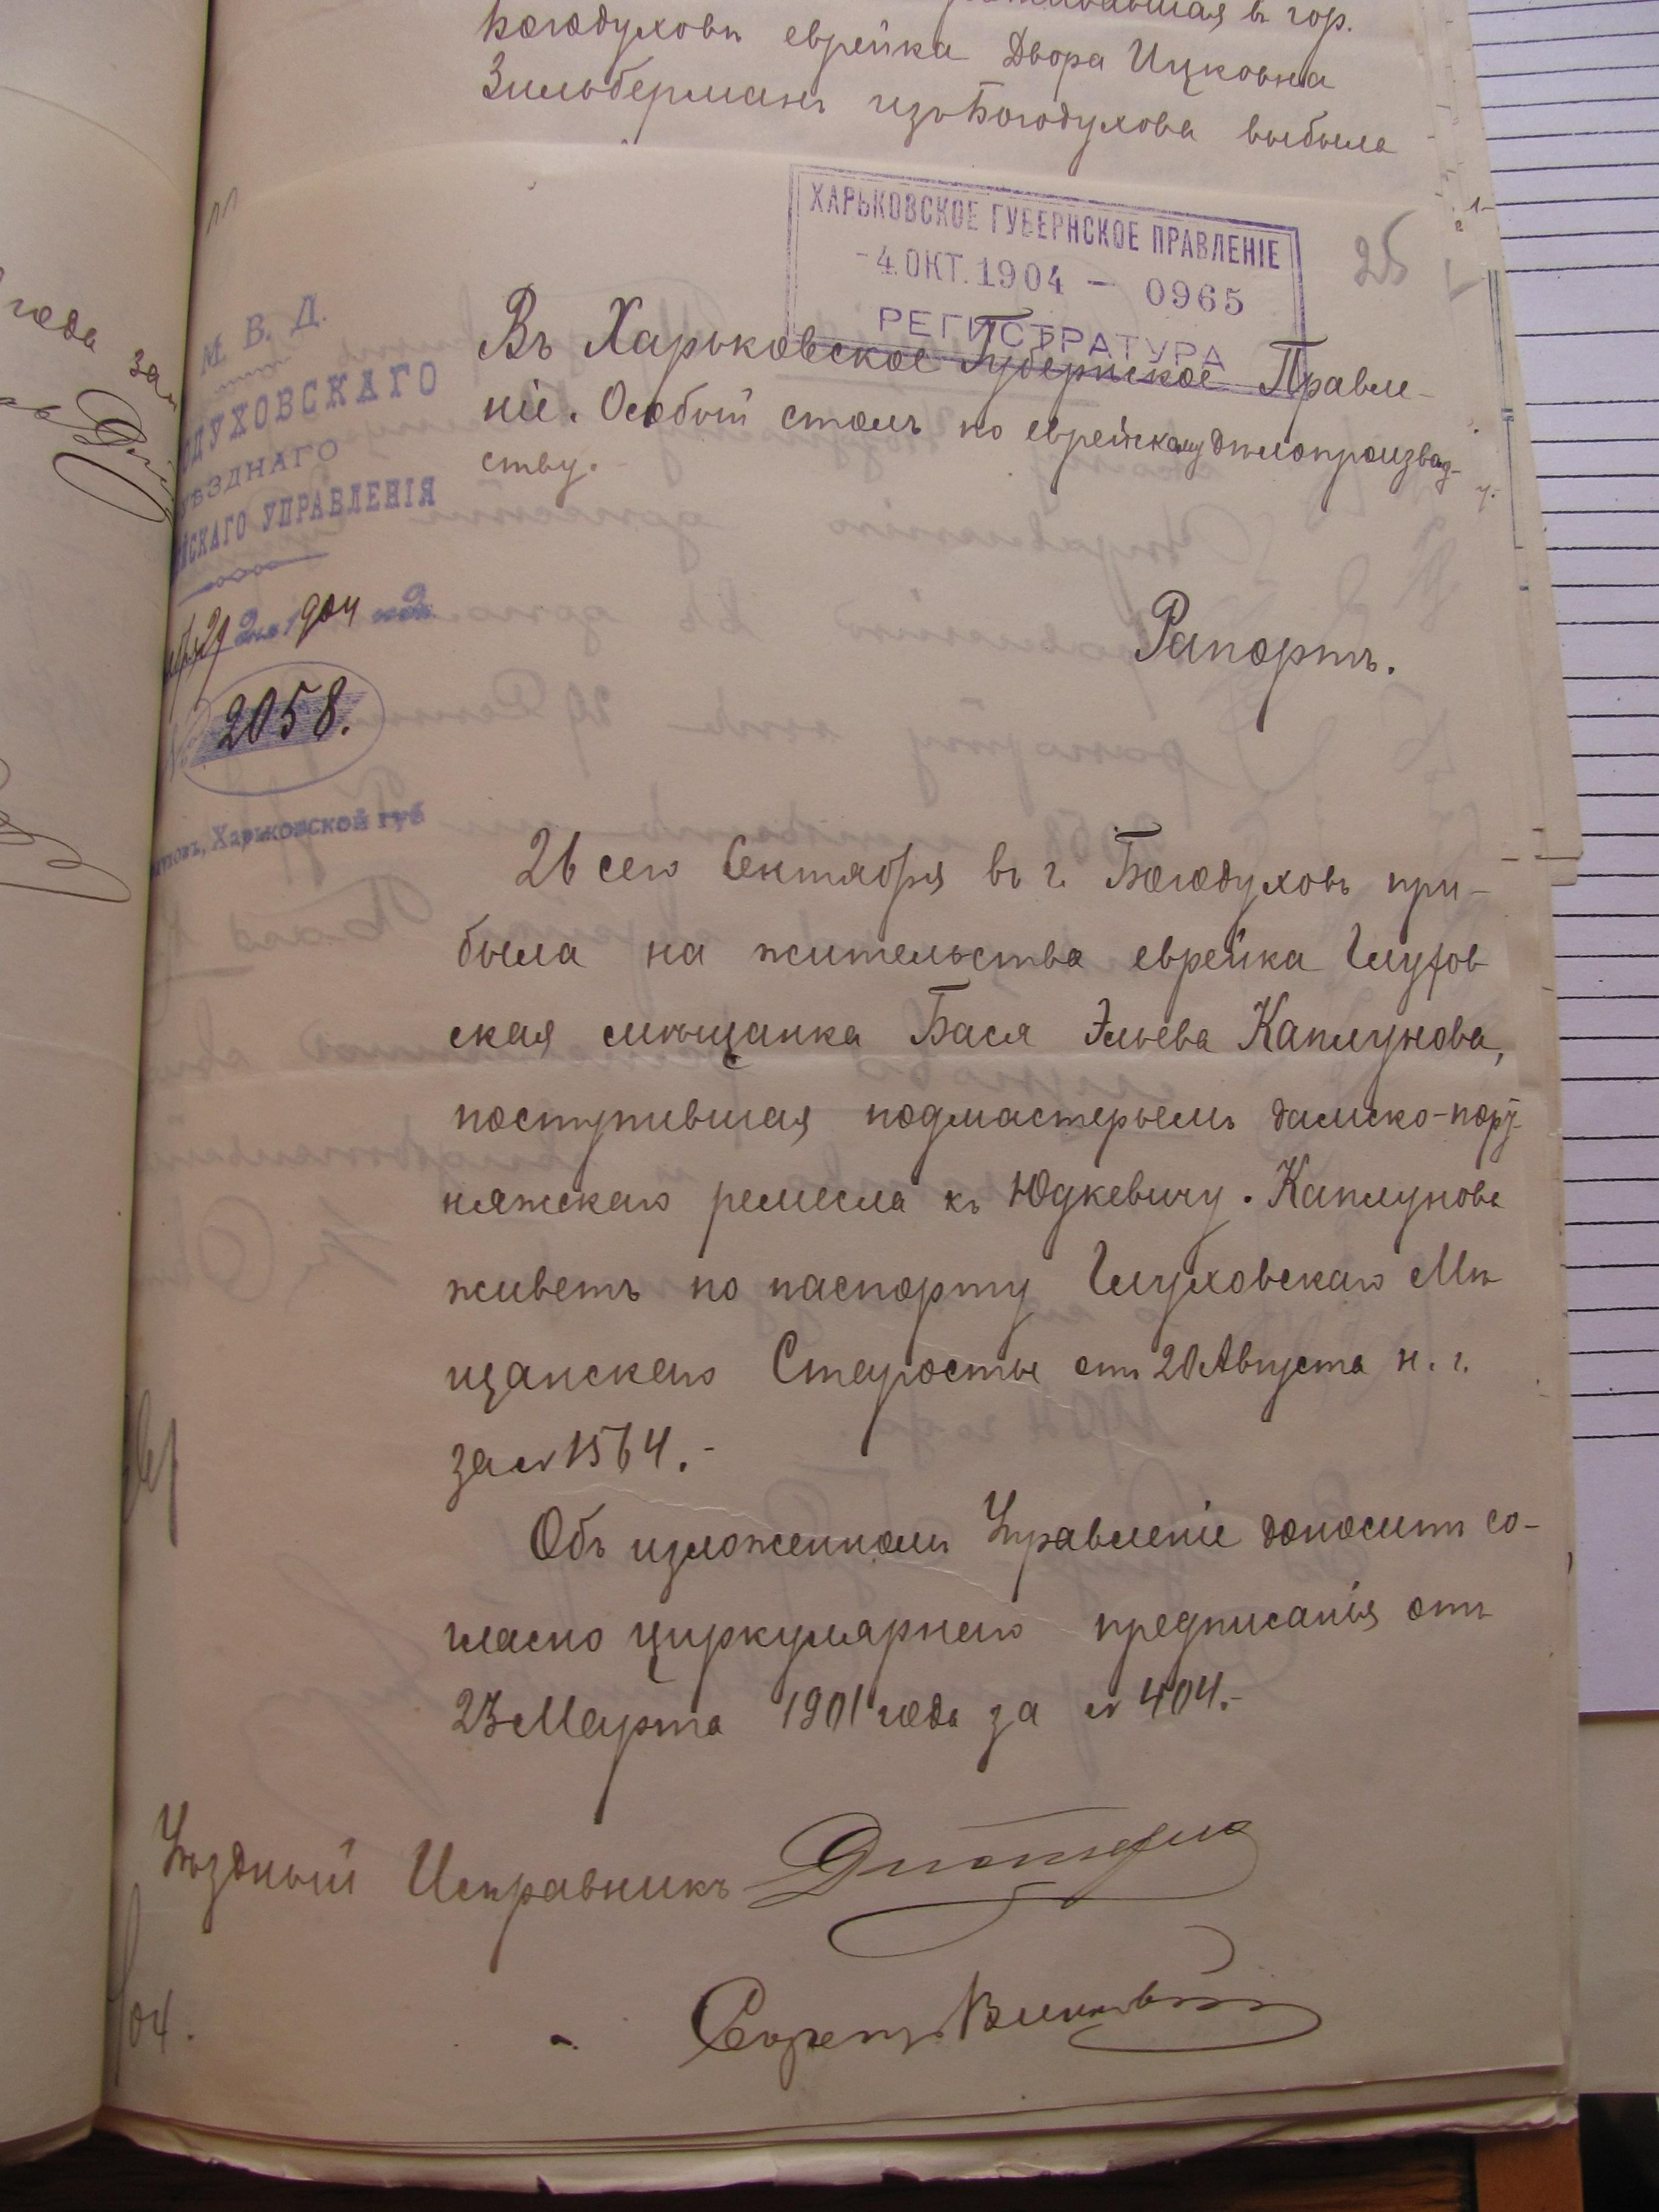 в гор.
Богодуховѣ еврейка Двора Ицковна
Зильберманъ изъ Богодухова выбыла
ХАРЬКОВСКОЕ ГУБЕРНСКОЕ ПРАВЛЕНІЕ
-4.ОКТ.1904 - 0965
РЕГИСТРАТУРА
25
М. В. Д.
ОДУХОВСКАГО
ѢЗДНАГО
ЙСКАГО УПРАВЛЕНІЯ
29 дня 1904 года
№ 2058.
Харьковской губ
года за
Въ Харьковское Губернское Правле-
ніе. Особый столъ по еврейскому дѣлопроизвод-
ству.
Рапортъ.
26 сего Сентября въ г. Богодуховъ при-
была на жительство еврейка Глухов
ская мѣщанка Бася Эльева Каплунова,
поступившая подмастерьемъ дамско-порт
няжскаго ремесла къ Юдкевичу. Каплунова
живетъ по паспорту Глуховскаго Мѣ
щанскаго Старосты отъ 20 Августа н. г.
за № 1564.-
Объ изложенномъ Управленіе доноситъ со-
гласно циркулярнаго предписанія отъ
23 Марта 1901 года за № 404.-
Уѣздный Исправникъ
Секретарь
04.